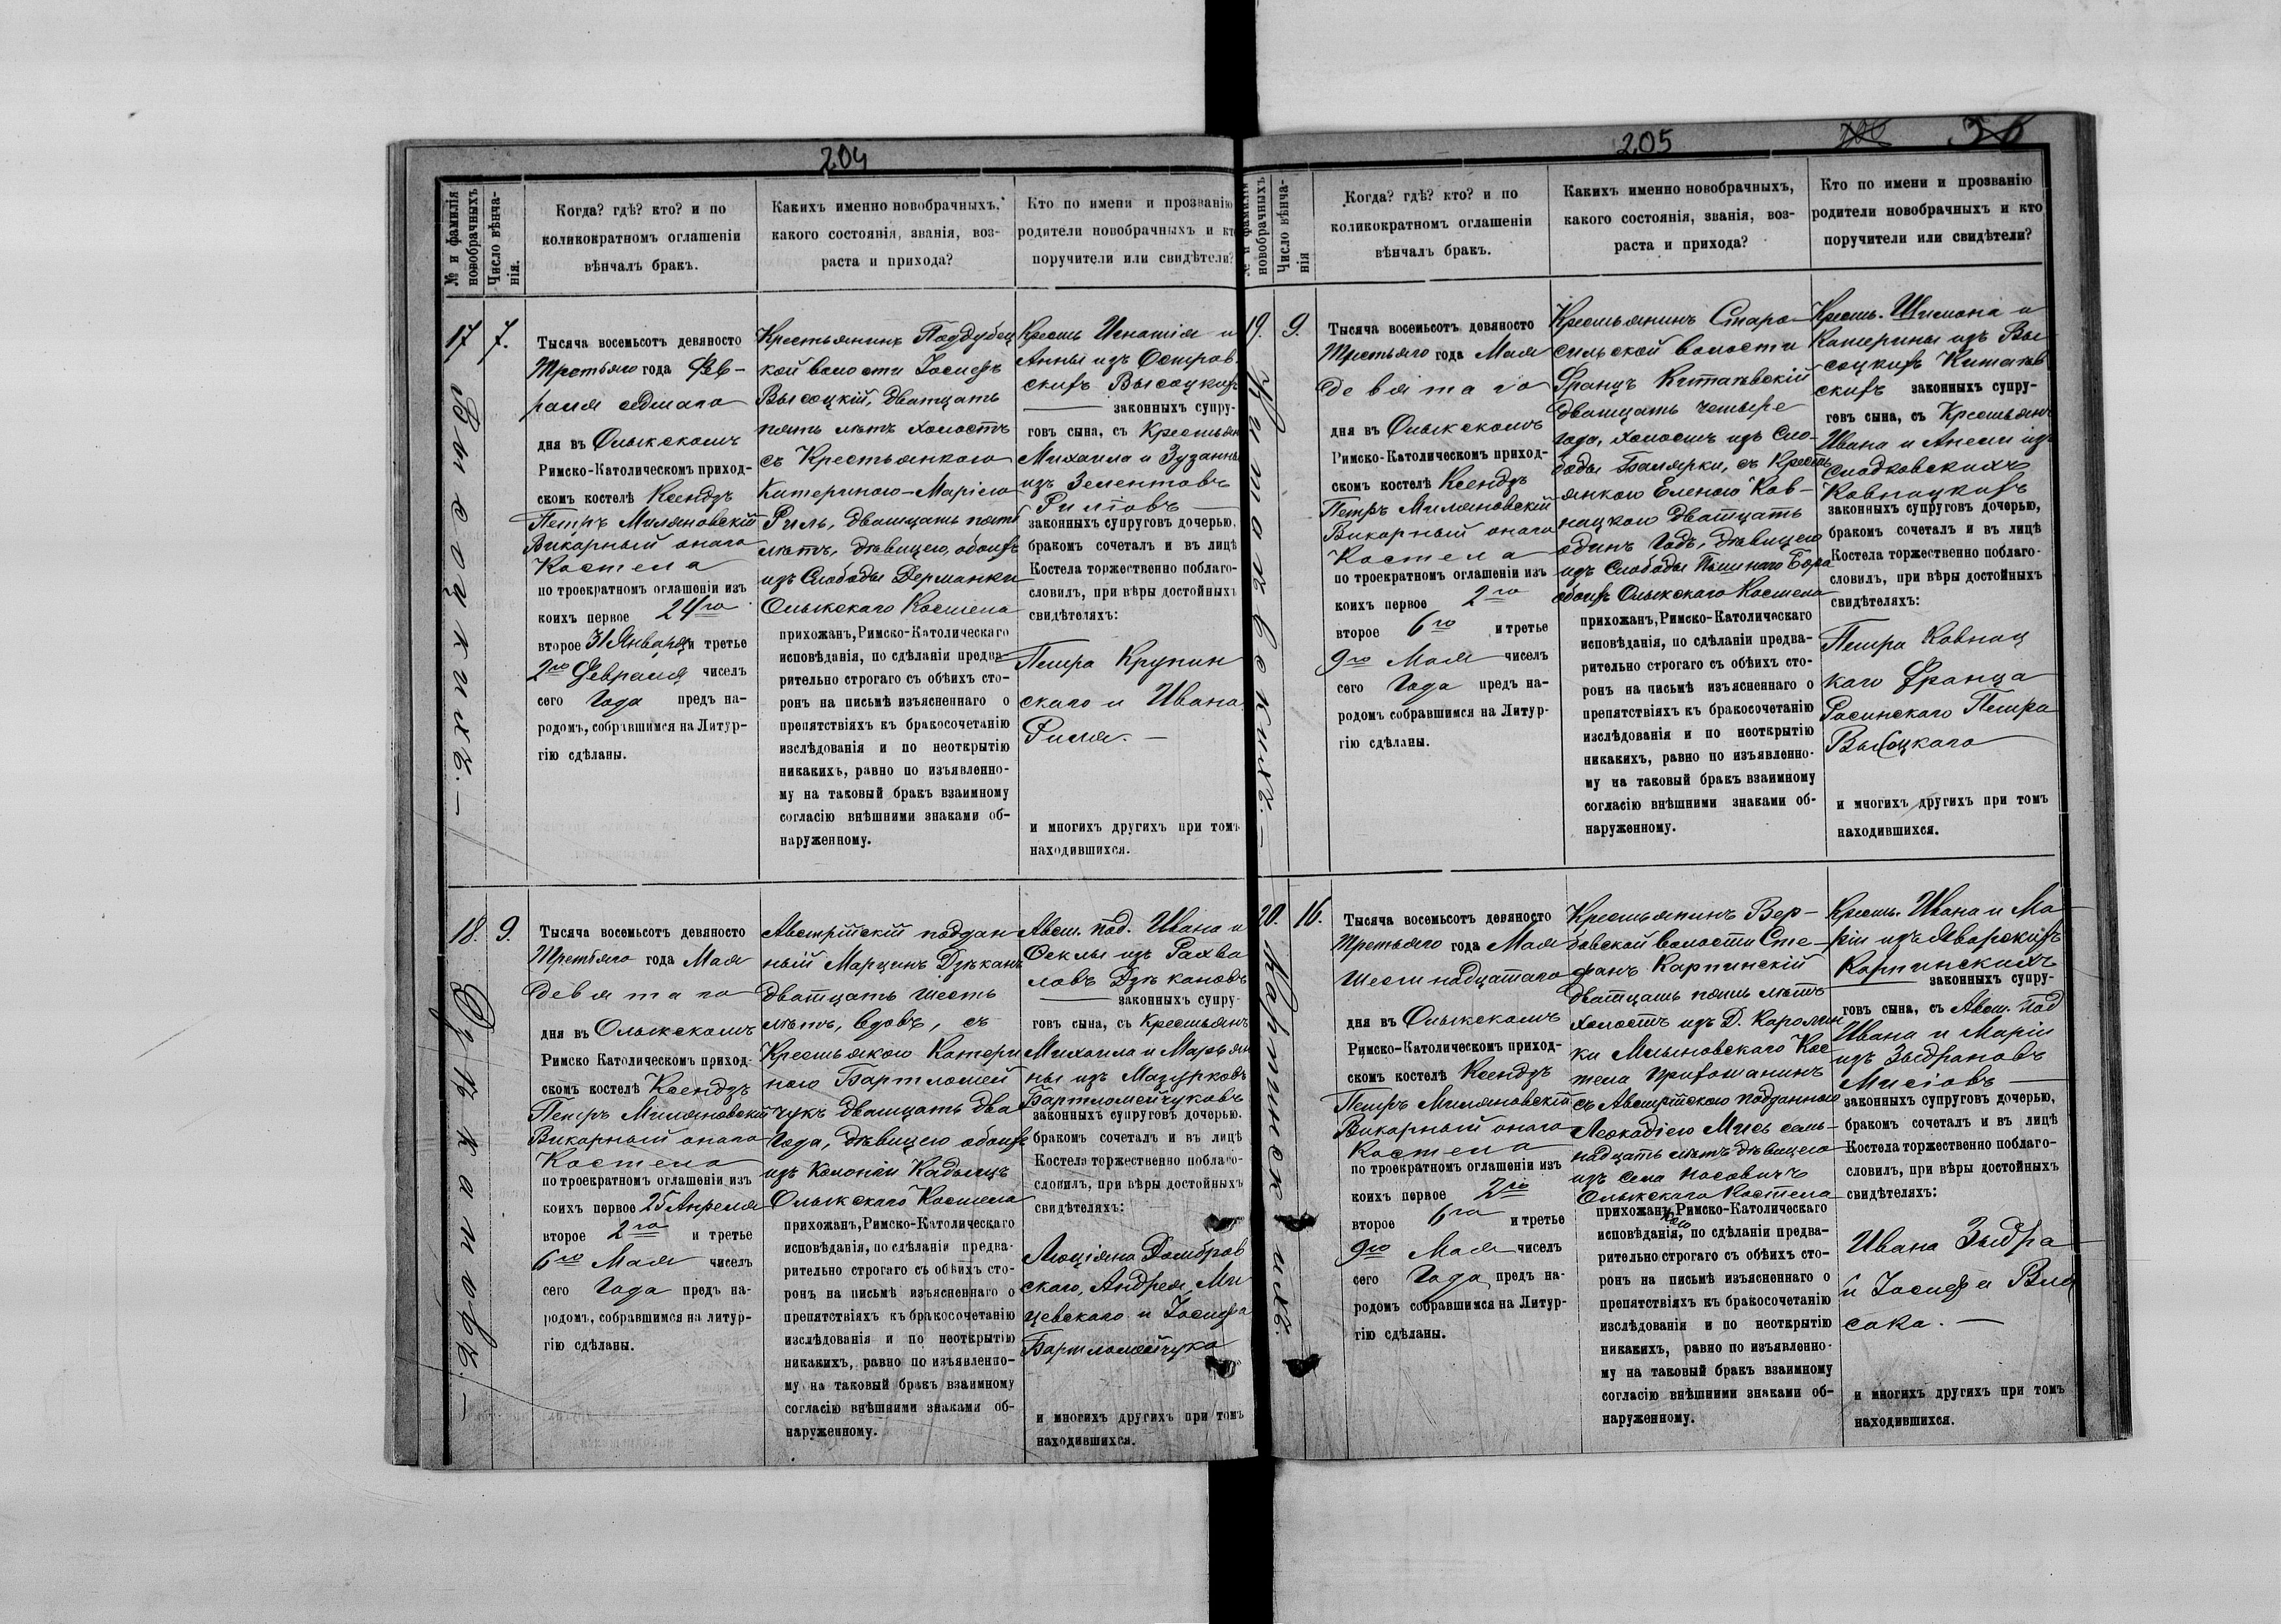 204
№ и фамилія
новобрачныхъ
Число вѣнча-
нія.
Когда? гдѣ? кто? и по
коликократномъ оглашеніи
вѣнчалъ бракъ.
Какихъ именно новобрачныхъ,
какого состоянія, званія, воз-
раста и прихода?
Кто по имени и прозванію
родители новобрачныхъ и кто
поручители или свидѣтели?
17
Высоцкихъ. —
7.
Тысяча восемьсотъ девяносто
Третьяго года Фев-
раля седмаго
дня въ Олыкскомъ
Римско-Католическомъ приход-
скомъ костелѣ Ксендзъ
Петръ Миляновскій
Викарный онаго
Костела
по троекратномъ оглашеніи изъ
коихъ первое 24го
второе 31 Января и третье
2го Февраля чиселъ
сего Года предъ на-
родомъ, собравшимся на Литур-
гію сдѣланы.
Крестьянинъ Поддубец
кой волости Іосифъ
Высоцкій, дватцать
пять лѣтъ холостъ
съ Крестьянкою
Катериною-Маріею
Риль, дватцать пять
лѣтъ, дѣвицею, обоихъ
изъ Слободы Дерманки
Олыкскаго Костела
прихожанъ, Римско-Католическаго
исповѣданія, по сдѣланіи предва-
рительно строгаго съ обѣихъ сто-
ронъ на письмѣ изъясненнаго о
препятствіяхъ къ бракосочетанію
изслѣдованія и по неоткрытію
никакихъ, равно по изъявленно-
му на таковый бракъ взаимному
согласію внѣшними знаками об-
наруженному.
Крестъ Игнатія и
Анны изъ Остров
скихъ Высоцкихъ
законныхъ супру-
говъ сына, съ Крестьян
Михаила и Зузанны
изъ Зелентовъ
Рилiовъ
законныхъ супруговъ дочерью,
бракомъ сочеталъ и въ лицѣ
Костела торжественно поблаго-
словилъ, при вѣры достойныхъ
свидѣтеляхъ:
Петра Крупин
скаго и Ивана
Риля. —
и многихъ другихъ при томъ
находившихся.
18.
Дзѣкановъ. —
9.
Тысяча восемьсотъ девяносто
Третьяго года Мая
девятаго
дня въ Олыкскомъ
Римско Католическомъ приход-
скомъ костелѣ Ксендзъ
Петръ Миляновскій
Викарный онаго
Костела
по троекратномъ оглашеніи изъ
коихъ первое 25 Апреля
второе 2го и третье
6го Мая чиселъ
сего Года предъ на-
родомъ, собравшимся на литур-
гію сдѣланы.
Австрійскій поддан
ный Марцинъ Дзѣканъ
дватцать шесть
лѣтъ, вдовъ, съ
Крестьянкою Катери
ною Бартломей
чукъ дватцать два
Года, дѣвицею обоихъ
изъ Колоніи Кадыщъ
Олыкскаго Костела
прихожанъ, Римско-Католическаго
исповѣданія, по сдѣланіи предва-
рительно строгаго съ обѣихъ сто-
ронъ на письмѣ изъясненнаго о
препятствіяхъ къ бракосочетанію
изслѣдованія и по неоткрытію
никакихъ, равно по изъявленно-
му на таковый бракъ взаимному
согласію внѣшними знаками об-
наруженному.
Авст. под. Ивана и
Феклы изъ Рахва
ловъ Дзѣкановъ
законныхъ супру
говъ сына, съ Крестьянъ
Михаила и Марьян
ны изъ Мазурковъ
Бартломейчуковъ
законныхъ супруговъ дочерью.
бракомъ сочеталъ и въ лицѣ
Костела торжественно поблаго-
словилъ, при вѣры достойныхъ
свидѣтеляхъ:
Люціяна Домбров
скаго, Андрея Ми
цевскаго и Іосифа
Бартломейчука
и многихъ другихъ при томъ
находившихся.
205
36
№ и фамилія
новобрачныхъ
Число вѣнча-
нія
Когда? гдѣ? кто? и по
коликократномъ оглашеніи
вѣнчалъ бракъ.
Какихъ именно новобрачныхъ,
какого состоянія, званія, воз-
раста и прихода?
Кто по имени и прозванію
родители новобрачныхъ и кто
поручители или свидѣтели?
19.
Китаевскихъ. —
9.
Тысяча восемьсотъ девяносто
Третьяго года Мая
девятаго
дня въ Олыкскомъ
Римско-Католическомъ приход-
скомъ костелѣ Ксендзъ
Петръ Миляновскій
Викарный онаго
Костела
по троекратномъ оглашеніи изъ
коихъ первое 2го
второе 6го и третье
9го Мая чиселъ
сего Года предъ на-
родомъ собравшимся на Литур-
гію сдѣланы.
Крестьянинъ Старо-
сильской волости
Францъ Китаевскій
дватцать четыре
года, холостъ изъ Сло-
боды Балярки, съ Кресть
янкою Еленою Ков-
нацкою дватцать
одинъ годъ, дѣвицею
изъ Слободы Бора
обоихъ Олыкскаго Костела
прихожанъ, Римско-Католическаго
исповѣданія, по сдѣланіи предва-
рительно строгаго съ обѣихъ сто-
ронъ на письмѣ изъясненнаго о
препятствіяхъ къ бракосочетанію
изслѣдованія и по неоткрытію
никакихъ, равно по изъявленно-
му на таковый бракъ взаимному
согласію внѣшними знаками об-
наруженному.
Крестъ. Шимона и
Катерины изъ Вы
соцкихъ Китаев
скихъ законныхъ супру-
говъ сына, съ Крестьянъ
Ивана и изъ
Сладковскихъ
Ковнацкихъ
законныхъ супруговъ дочерью,
бракомъ сочеталъ и въ лицѣ
Костела торжественно поблаго-
словилъ, при вѣры достойныхъ
свидѣтеляхъ:
Петра Ковнац
каго Франца
Росинскаго Петра
Высоцкаго
и многихъ другихъ при томъ
находившихся.
20.
Карпинскихъ.
16.
Тысяча восемьсотъ девяносто
Третьяго года Мая
Шестнадцатаго
дня въ Олыкскомъ
Римско-Католическомъ приход-
скомъ костелѣ Ксендзъ
Петръ Миляновскій
Викарный онаго
Костела
по троекратномъ оглашеніи изъ
коихъ первое 2го
второе 6го и третье
9го Мая чиселъ
сего Года предъ на-
родомъ собравшимся на Литур-
гію сдѣланы.
Крестьянинъ Вер-
бовской волости Сте-
фанъ Карпинскій
дватцать пять лѣтъ
холостъ изъ Д. Каролин
ки Млыновскаго Кос
тела прихожанинъ
съ Австрійскою подданною
Леокадіею Мись семь-
надцать лѣтъ дѣвицею
изъ села Носовичъ
Олыкскаго Костела
прихожанкою, Римско-Католическаго
исповѣданія, по сдѣланіи предва-
рительно строгаго съ обѣихъ сто-
ронъ на письмѣ изъясненнаго о
препятствіяхъ къ бракосочетанію
изслѣдованія и по неоткрытію
никакихъ, равно по изъявленно-
му на таковый бракъ взаимному
согласію внѣшними знаками об-
наруженному.
Крестъ. Ивана и Ма
ріи изъ Яворскихъ
Карпинскихъ
законныхъ супру-
говъ сына, съ Авст. под
Ивана и Маріи
изъ Зыдрановъ
Мисiовъ
законныхъ супруговъ дочерью,
бракомъ сочеталъ и въ лицѣ
Костела торжественно поблаго-
словилъ, при вѣры достойныхъ
свидѣтеляхъ:
Ивана Зыдра
и Іосифа
сака. —
и многихъ другихъ при томъ
находившихся.